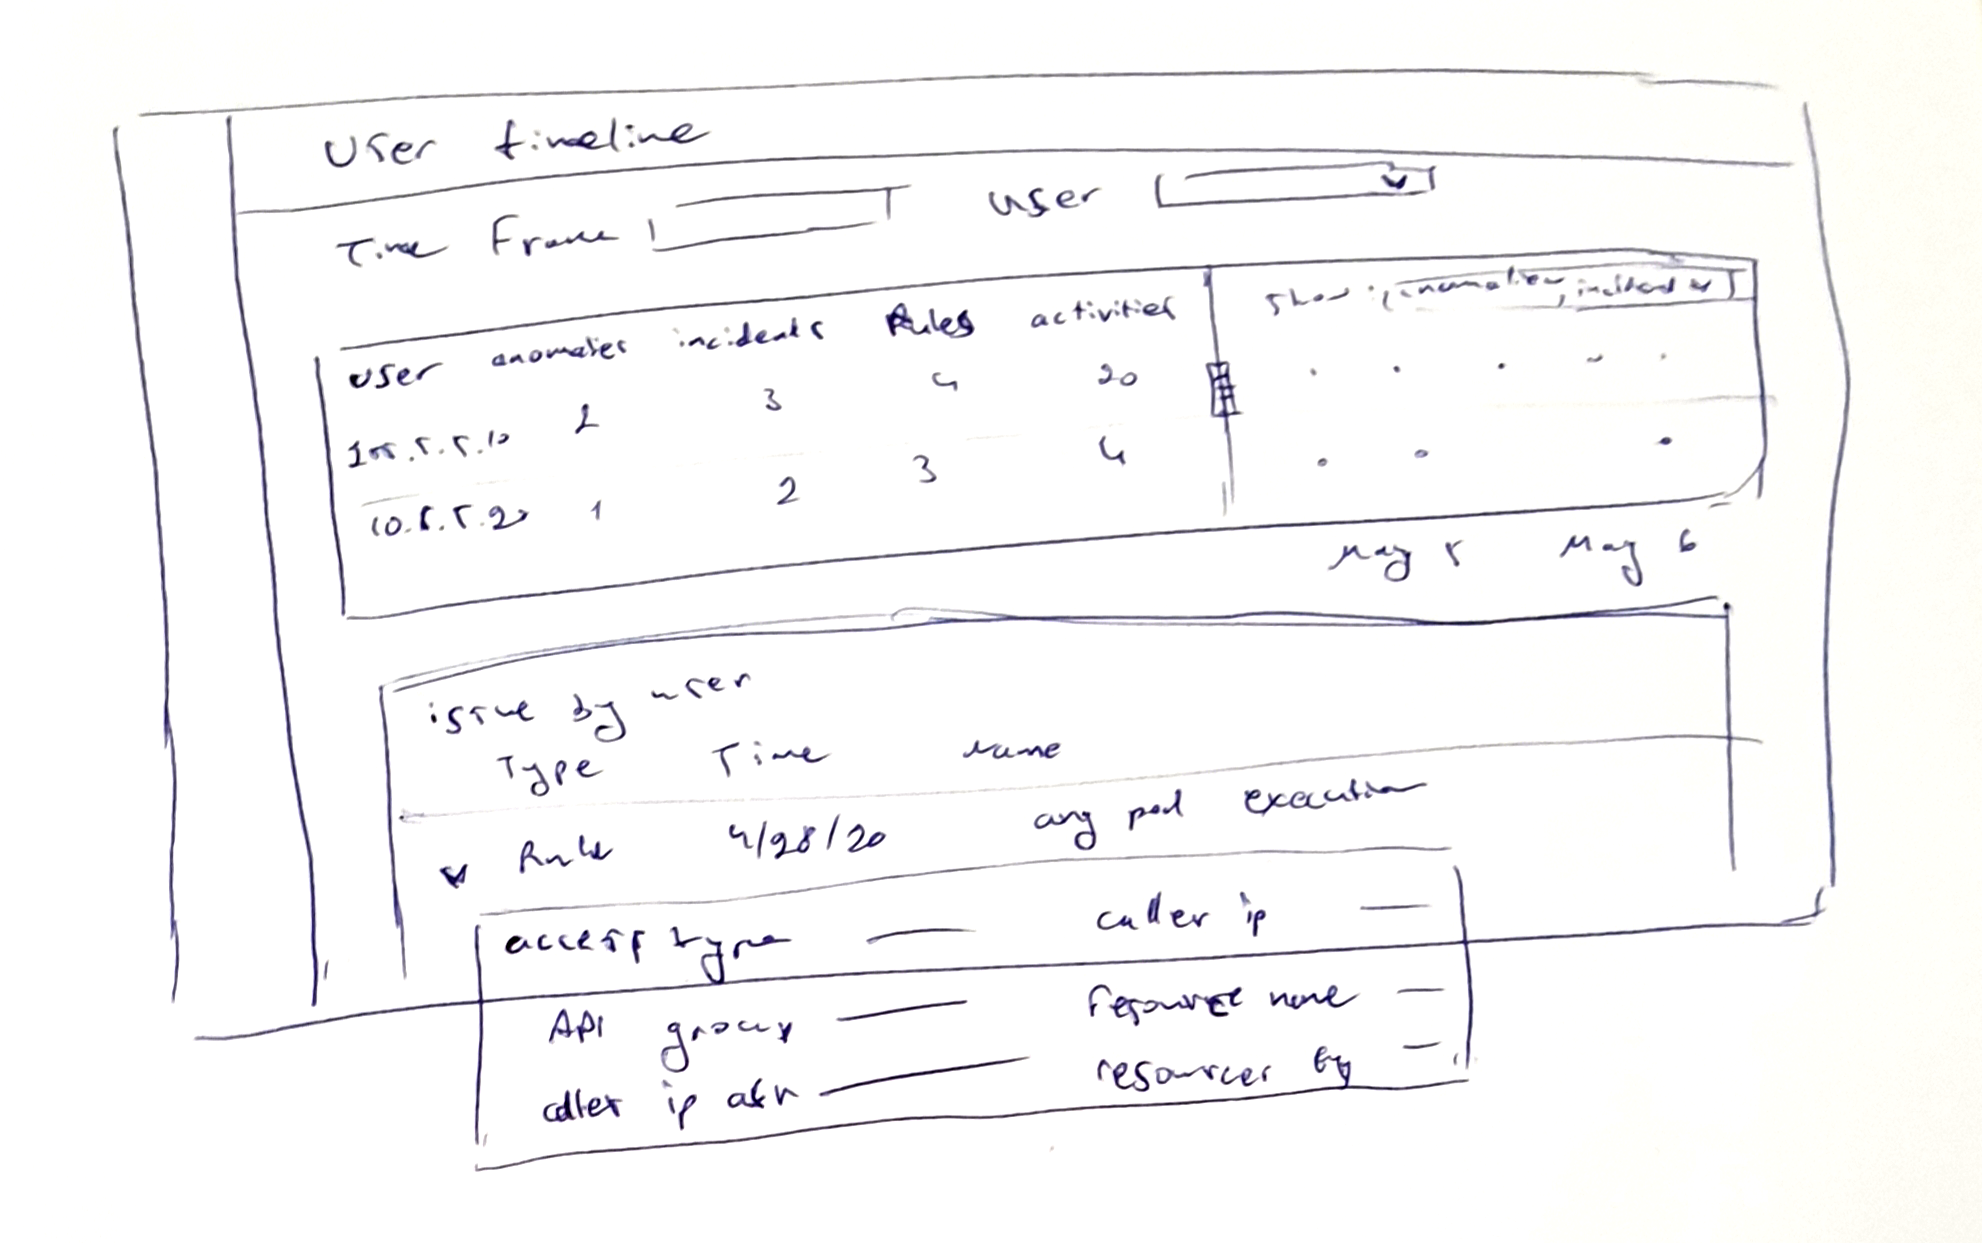 User timeline
Time Frame user
user anomalies incidents Rules activities show: anomalies, incident
3 4 20
10.5.5.20 1 2 3 4
May 5 May 6
issue by user
Type Time name
Rule 4/28/20 any pod execution
access type caller ip
API group resource name
caller ip resources by